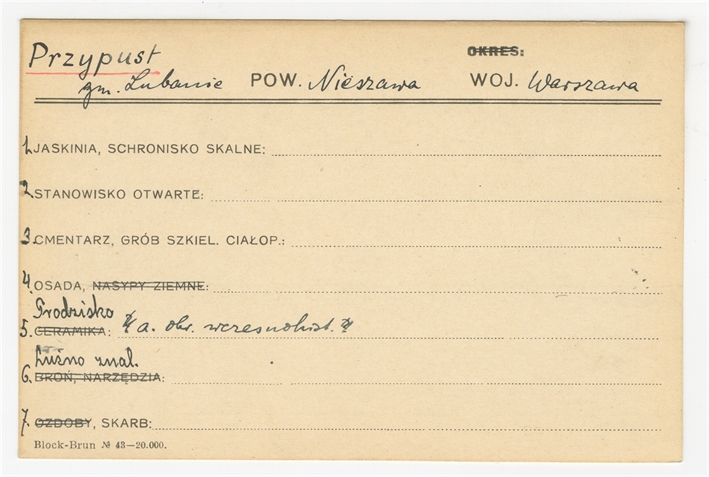 Przypust OKRES:
gm. Lubanie POW. Nieszawa WOJ. Warszawa
1. JASKINIA, SCHRONISKO SKALNE:
2. STANOWISKO OTWARTE:
3. CMENTARZ, GRÓB SZKIEL. CIAŁOP.:
4. OSADA, NASYPY ZIEMNE:
Grodzisko
5. CERAMIKA: a. okr. wczesnohist.
Luźno znal.
6. BROŃ, NARZĘDZIA:
7. OZDOBY, SKARB:
Block-Brun № 43—20.000.